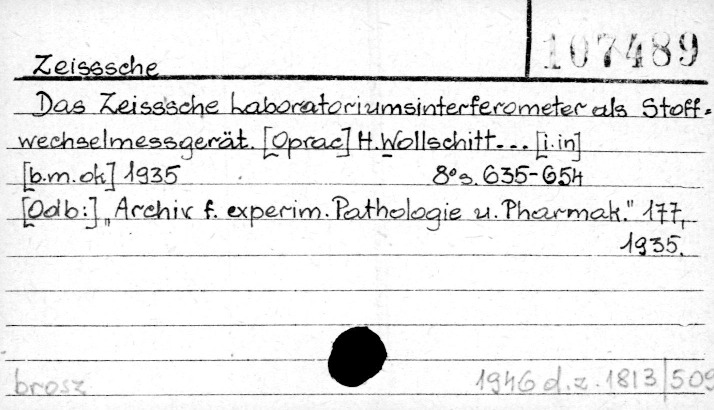 107489
Zeisssche
Das Zeisssche Laboratoriumsinterferometer als Stoff=
wechselmessgerät. [Oprac] H. Wollschitt... [i.in]
[b.m.ok] 1935 8° s. 635-654
[Odb:] „Archiv f. experim. Pathologie u. Pharmak." 177,
1935.
brosz 1946 d.z. 1813/509